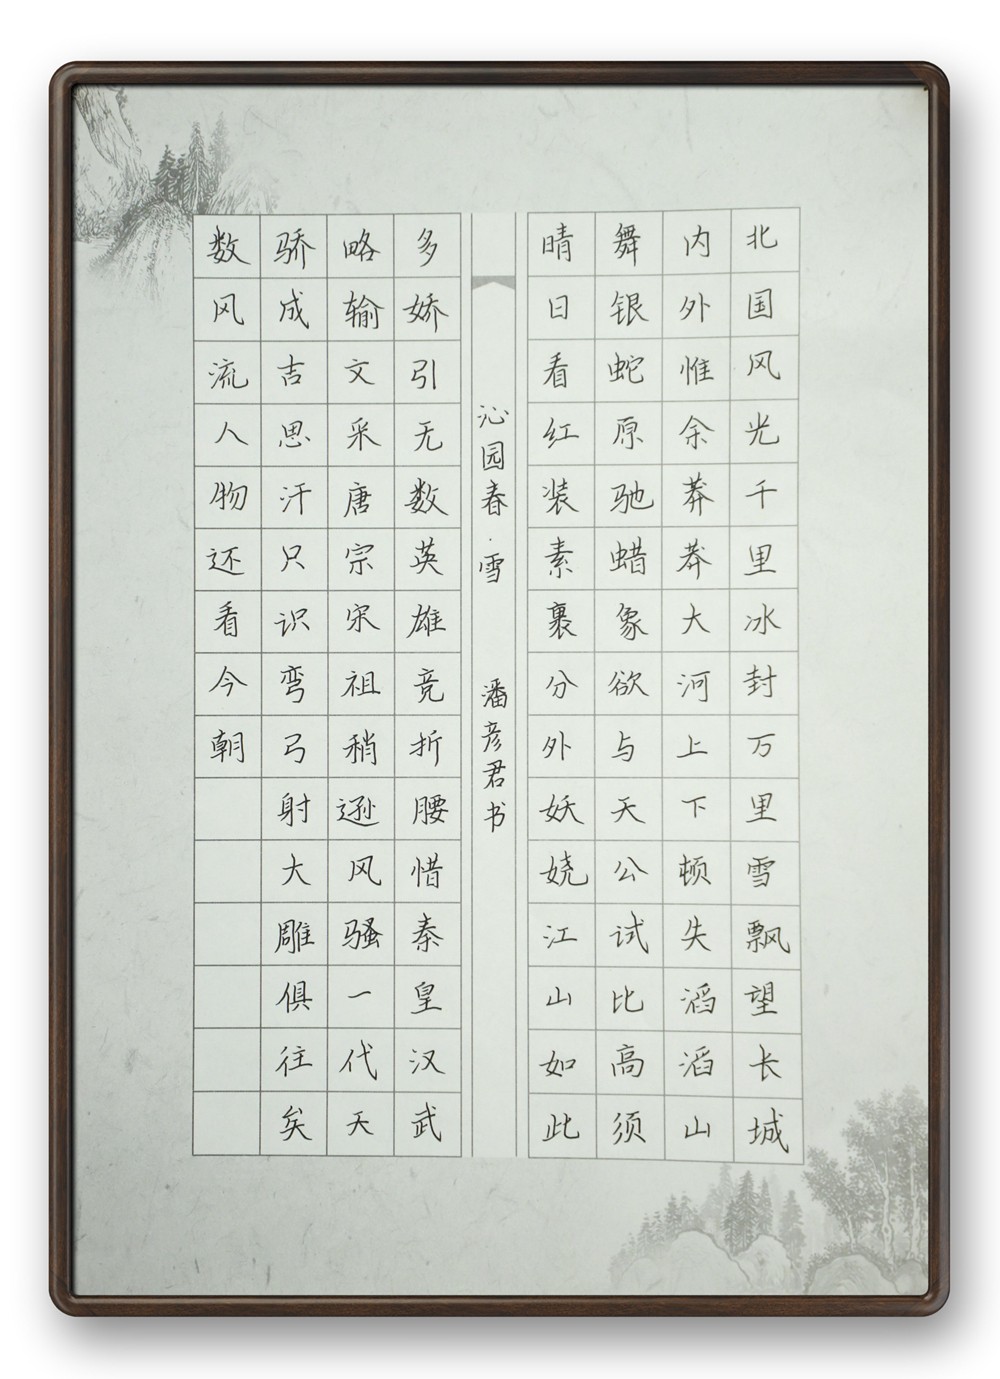 北国风光千里冰封万里雪飘望长城
内外惟余莽莽大河上下顿失滔滔山
舞银蛇原驰蜡象欲与天公试比高须
晴日看红装素裹分外妖娆江山如此
沁园春·雪 潘彦君书
多娇引无数英雄竞折腰惜秦皇汉武
略输文采唐宗宋祖稍逊风骚一代天
骄成吉思汗只识弯弓射大雕俱往矣
数风流人物还看今朝